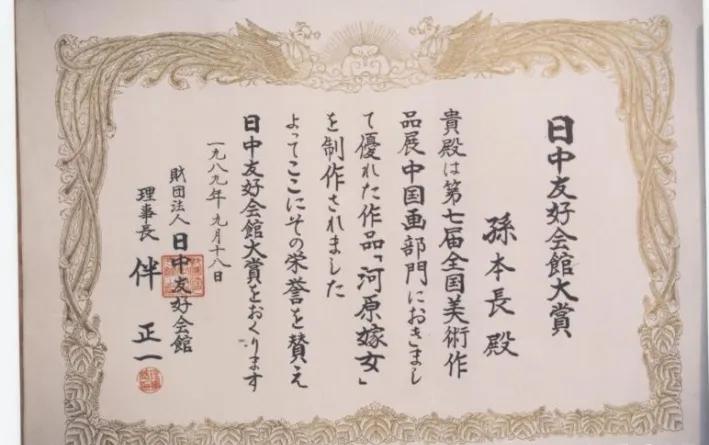 日中友好会館大賞
孫本長殿
貴殿は第七届全国美術作
品展中国画部門におきまし
て優れた作品「河原嫁女」
を制作されました
よってここにその栄誉を賛え
日中友好会館大賞をおくります
一九八九年九月十八日
財団法人日中友好会館
理事長 伴正一